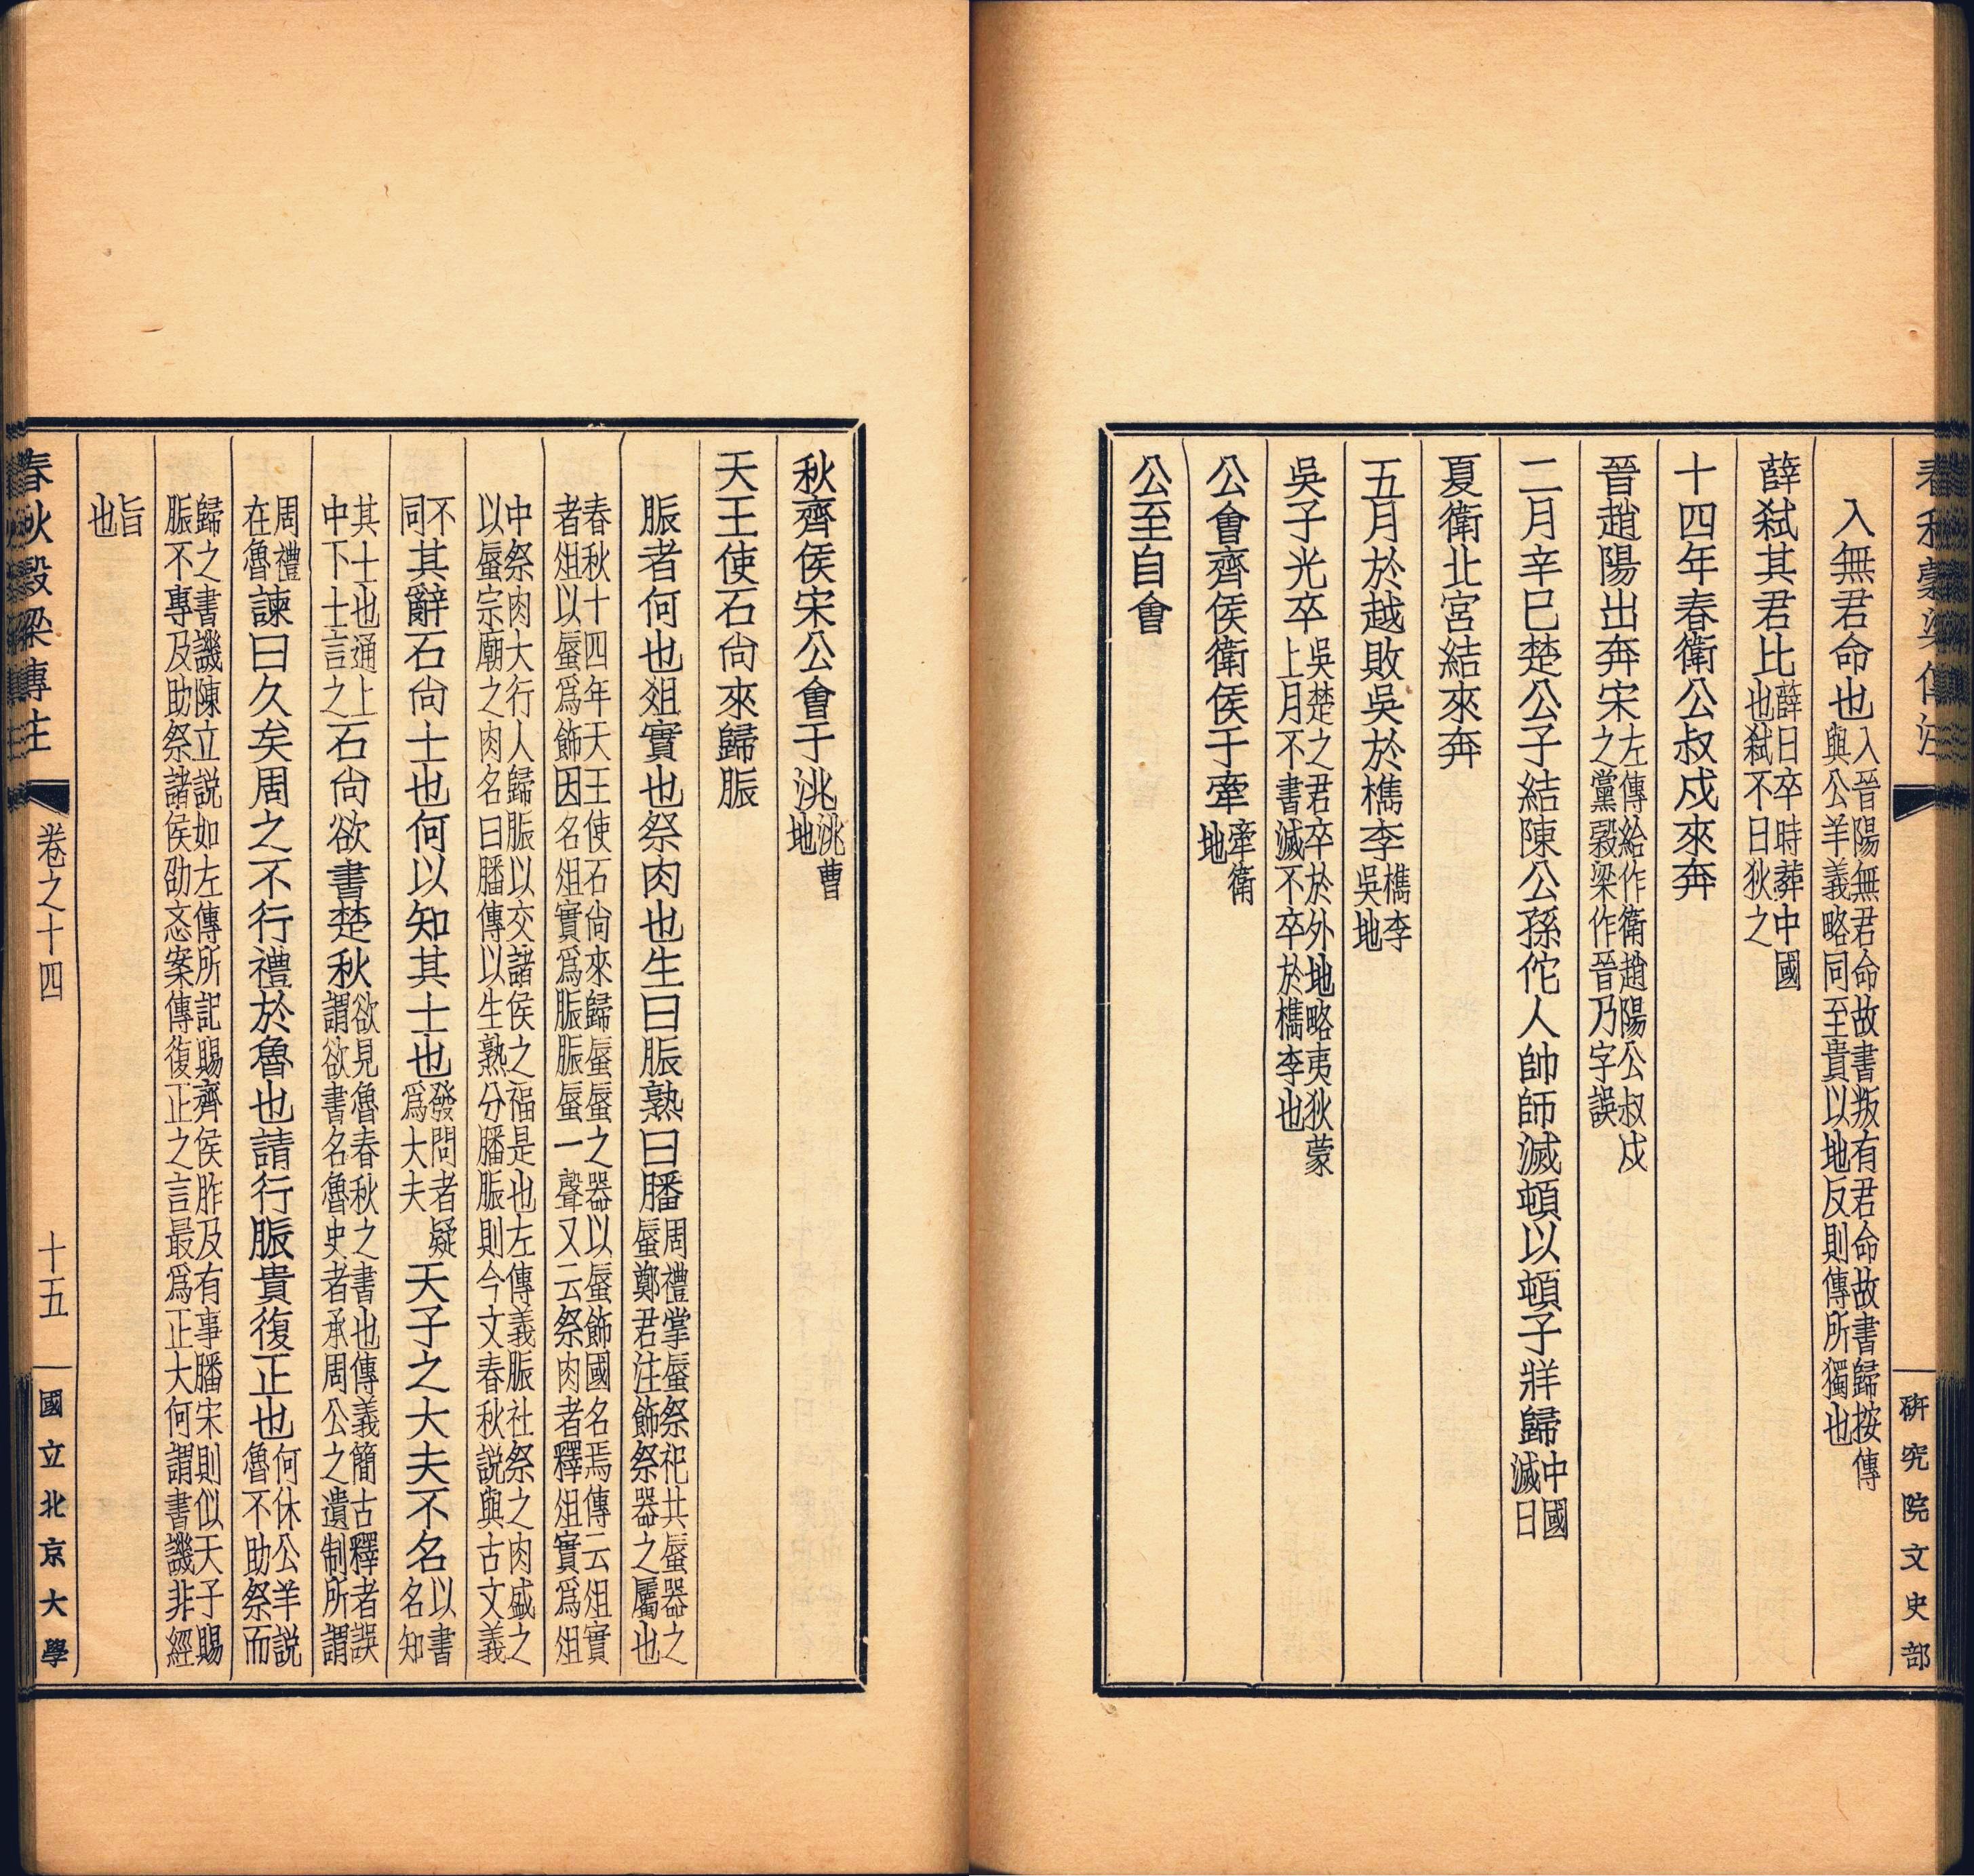 春秋穀梁傳注
研究院文史部
入無君命也入晉陽無君命故書叛有君命故書歸按傳
與公羊義略同至貴以地反則傳所獨也
薛弑其君比薛日卒時葬中國
也弑不日狄之
十四年春衛公叔戍來奔
晉趙陽出奔宋左傳給作衛趙陽公叔戍
之黨穀梁作晉乃字誤
二月辛巳楚公子結陳公孫佗人帥師滅頓以頓子牂歸中國
滅日
夏衛北宮結來奔
五月於越敗吳於檇李檇李
吳地
吳子光卒吳楚之君卒於外地略夷狄蒙
上月不書滅不卒於檇李也
公會齊侯衛侯于牽牽衛
地
公至自會
秋齊侯宋公會于洮洮曹
地
天王使石尙來歸脤
脤者何也俎實也祭肉也生曰脤熟曰膰周禮掌蜃祭祀共蜃器之
蜃鄭君注飾祭器之屬也
春秋十四年天王使石尙來歸蜃蜃之器以蜃飾國名焉傳云俎實
者俎以蜃爲飾因名俎實爲脤脤蜃一聲又云祭肉者釋俎實爲俎
中祭肉大行人歸脤以交諸侯之福是也左傳義脤社祭之肉盛之
以蜃宗廟之肉名曰膰傳以生熟分膰脤則今文春秋説與古文義
不
同其辭石尙士也何以知其士也發問者疑
爲大夫天子之大夫不名以書
名知
其士也通上
中下士言之石尙欲書楚秋欲見魯春秋之書也傳義簡古釋者誤
謂欲書名魯史者承周公之遺制所謂
周禮
在魯諫曰久矣周之不行禮於魯也請行脤貴復正也何休公羊説
魯不助祭而
歸之書譏陳立説如左傳所記賜齊侯胙及有事膰宋則似天子賜
脤不專及助祭諸侯劭忞案傳復正之言最爲正大何謂書譏非經
旨
也
春秋穀梁傳注
卷之十四
十五
國立北京大學